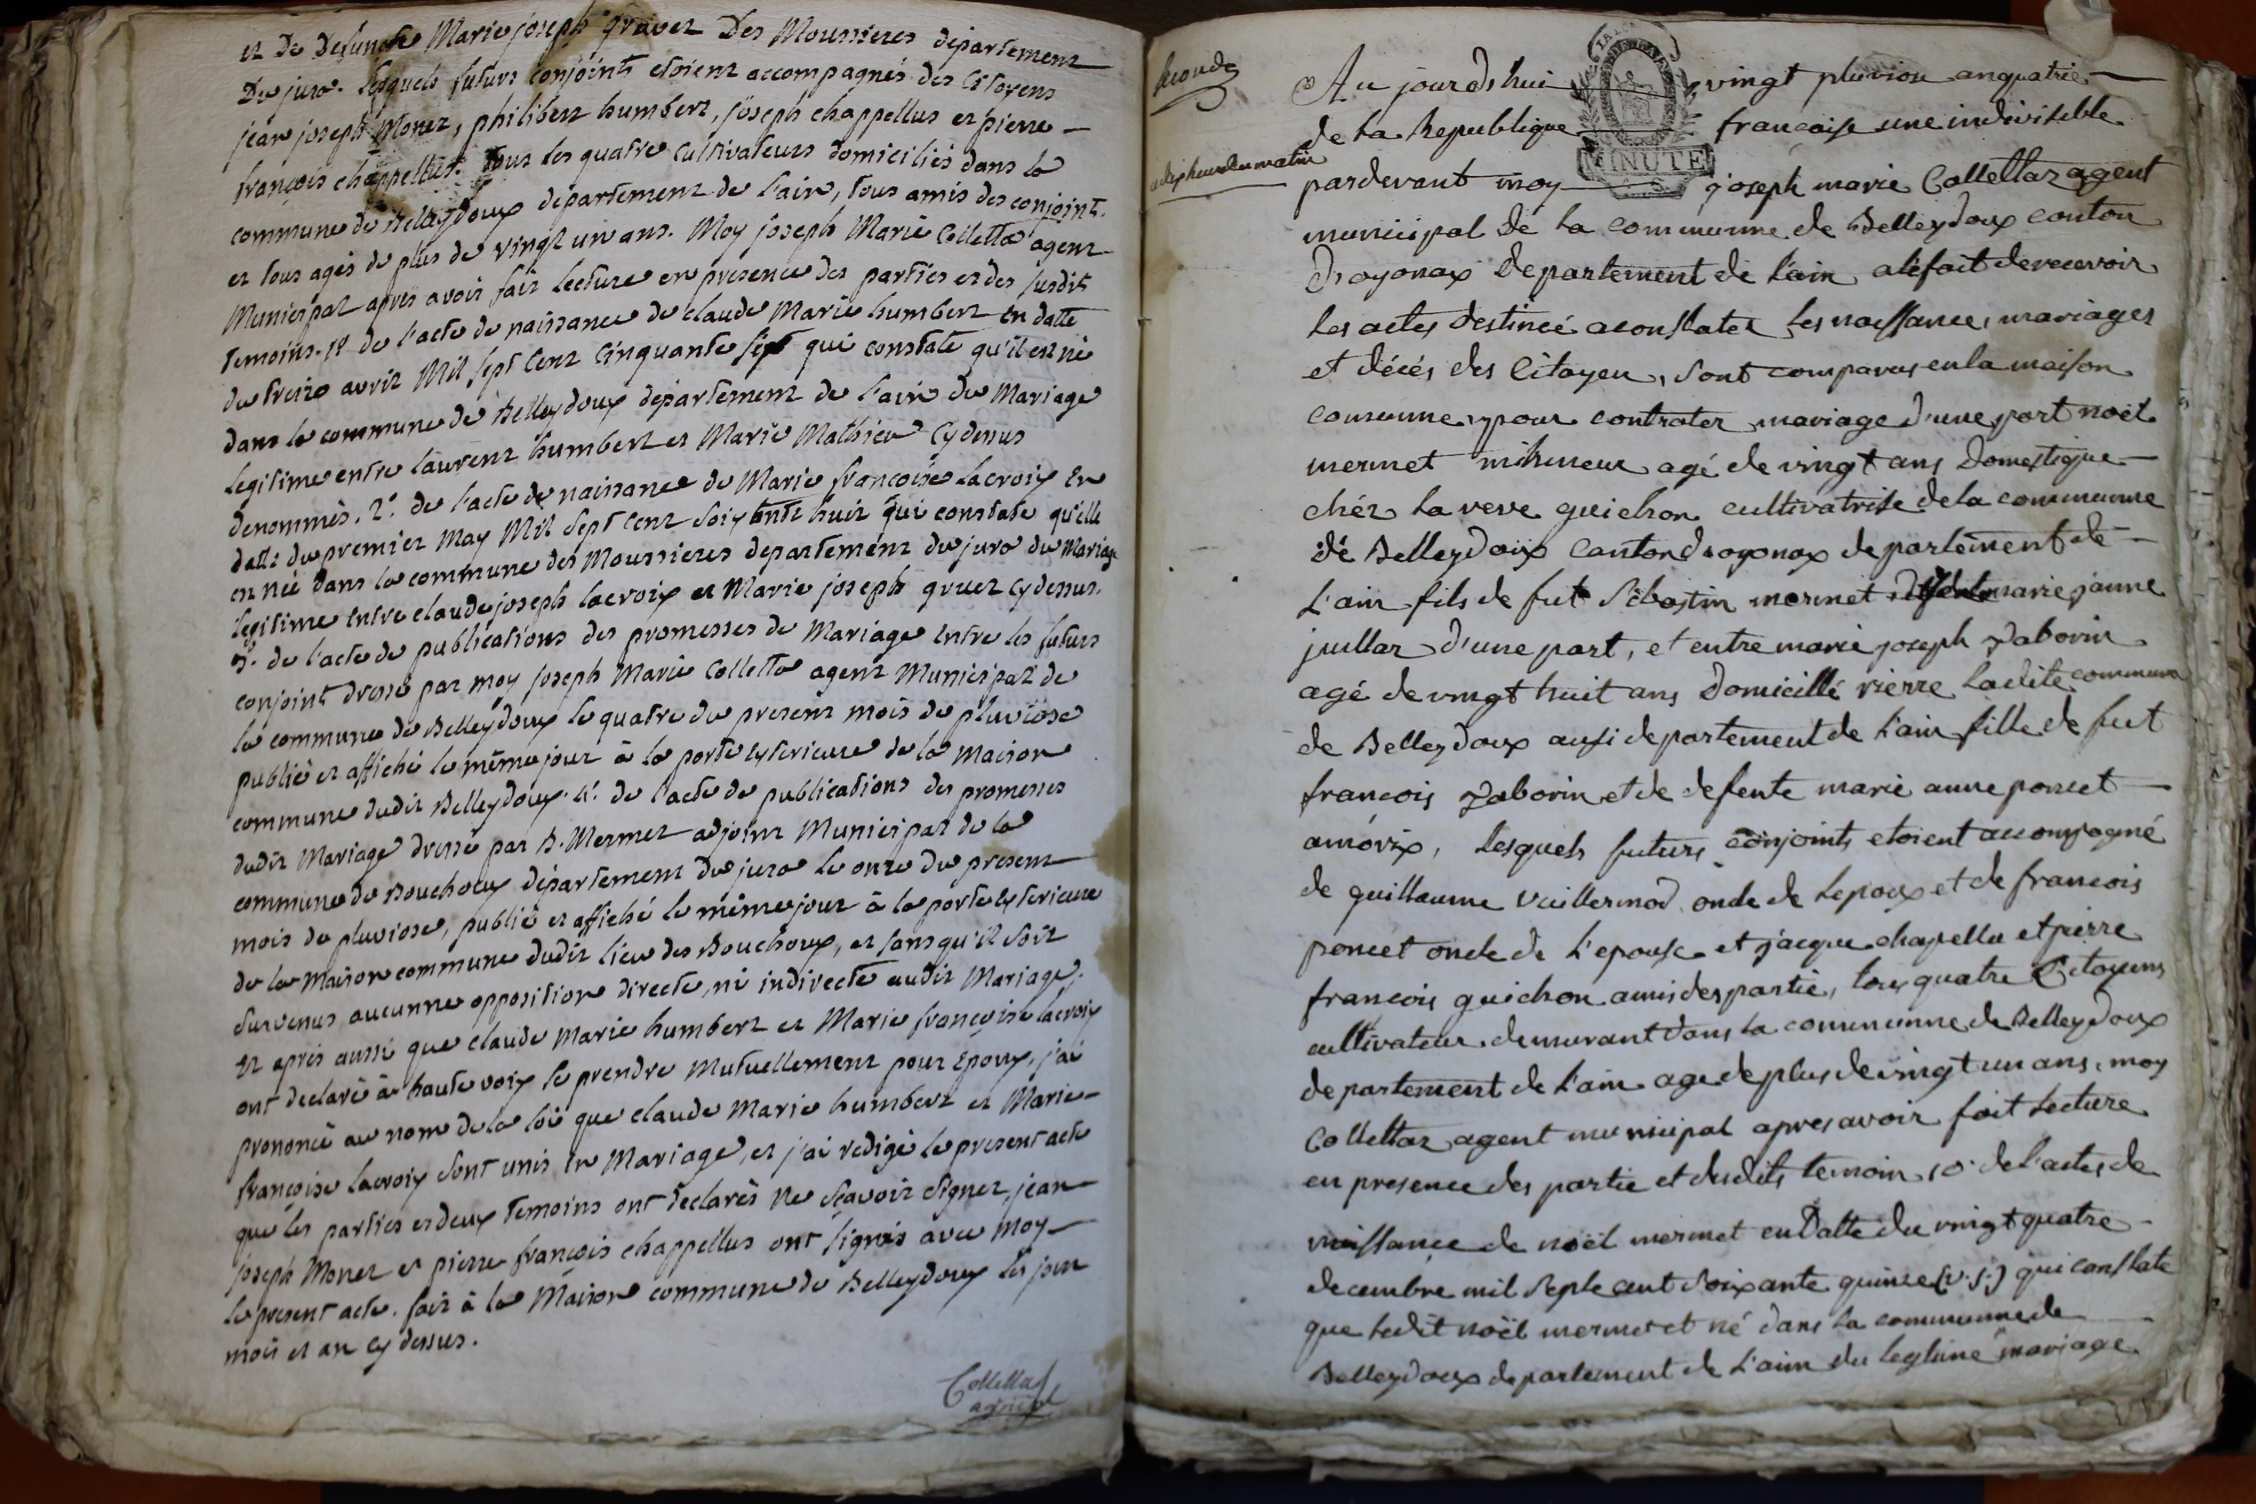 et De defuncte Marie joseph gruuet Des Moussieres departement
Du jura. lesquels futurs conjoints etoient accompagnés des Citoyens
jean joseph Monet, philibert humbert, joseph chappellus et pierre
françois chappellus. tous les quatre cultivateurs domiciliés dans la
commune de Belleydoux departement de l'ain, tous amis des conjoints
et tous agés de plus de vingt un ans. Moy joseph Marie Colletta agent
Municipal apres avoir fait lecture en presence des parties et des susdits
temoins. 1º de l'acte de naissance de claude Marie humbert en datte
du treize avril Mil sept Cent Cinquante sept qui constate qu'il est né
dans la commune de Belleydoux departement de l'ain du Mariage
Legitime entre laurent humbert et Marie Mathieu Cydessus
denommés. 2º. de l'acte de naissance de Marie françoise lacroix En
datte du premier May Mil Sept Cent soixante huit qui constate qu'elle
est née dans la commune des Moussieres departement du jura du Mariage
legitime entre claude joseph lacroix et Marie joseph gruet Cydessus.
3º. de l'acte de publications des promesses de Mariage entre les futurs
conjoint dressé par moy joseph Marie Colletta agent Municipal de
la commune de Belleydoux le quatre du present mois de pluviose
publié et affiché le même jour à la porte exterieure de la Maison
commune dudit Belleydoux. 4º. de l'acte de publications des promesses
dudit Mariage dressé par B. Mermet adjoint Municipal de la
commune de Bouchoux département du jura le onze du present
mois de pluviose, publié et affiché le même jour à la porte exterieure
de la Maison commune dudit lieu des Bouchoux, et sans qu'il soit
survenus aucunne opposition directe, ni indirecte audit Mariage.
Et apris aussi que claude Marie humbert et Marie françoise lacroix
ont declaré à haute voix se prendre Mutuellement pour Epoux, j'ai
prononcé au nom de la loi que claude Marie humbert et Marie
françoise lacroix sont unis en Mariage, et j'ai redigé le present acte
que les parties et deux temoins ont declarés ne sçavoir signer, jean
joseph Monet et pierre françois chappellus ont signés avec moy
le present acte. fait à la Maison commune de Belleydoux les jour
mois et an cy dessus.
Collettaz
agent
seconde
a dix heures du matin
MINUTE
Au jourdshui vingt pluviou anquatrie
de la Republique francaise une indivisible
pardevant moy joseph marie Collettaz agent
municipal de la communne de Belleydoux conton
Doyonax Departement de l'ain alefait derecevoir
les actes destineé aconstater les naissance, mariages
et décés des Citoyen, sont comparus enla maison
comunne, pour contrater mariage d'une part noël
mermet mihneur agé de vingt ans Domestique
chéz la veve guichon cultivatrise de la communne
dé Belleydoux Canton doyonax departement de
L'ain fils de fut Sébastin mermet marie janne
juillar d'une part, et entre marie joseph Daborin
agé de vingt huit ans Domicillé rierre ladite commune
de Belleydoux ausi departement de l'ain fille de fut
francois Daborin et de defente marie anne poncet
amorix, lesquels futurs conjoints etoient accompagné
de guillaume vuillermod oncle de lepoux et de francois
poncet oncle de l'epouse et jacque chapellu et pierre
francois guichon amis des partie, tous quatre Citoyens
cultivateur demurant dans la communne de Belleydoux
departement de l'ain age de plus de vingt un ans, moy
Collettaz agent municipal apres avoir fait lecture
en presence des partie et desdits temoin, 1º de l'actes de
naissance de noël mermet en datte du vingt quatre
decembre mil septe cent soixante quinze (v.s.) qui constate
que ledit noël mermet et né dans la communne de
Belleydoux departement de L'ain du legtime mariage